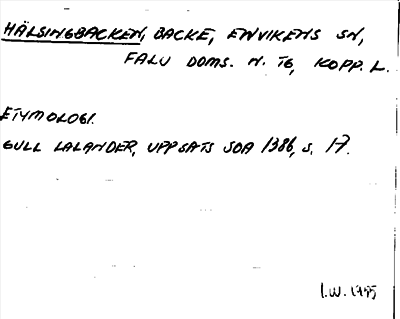 HÄLSINGBACKEN, BACKE, ENVIKENS SN,
FALU DOMS. N. TG, KOPP. L.
ETYMOLOGI.
GULL LALANDER, UPPSATS SOA 1386, S. 17.
I.W. 1945